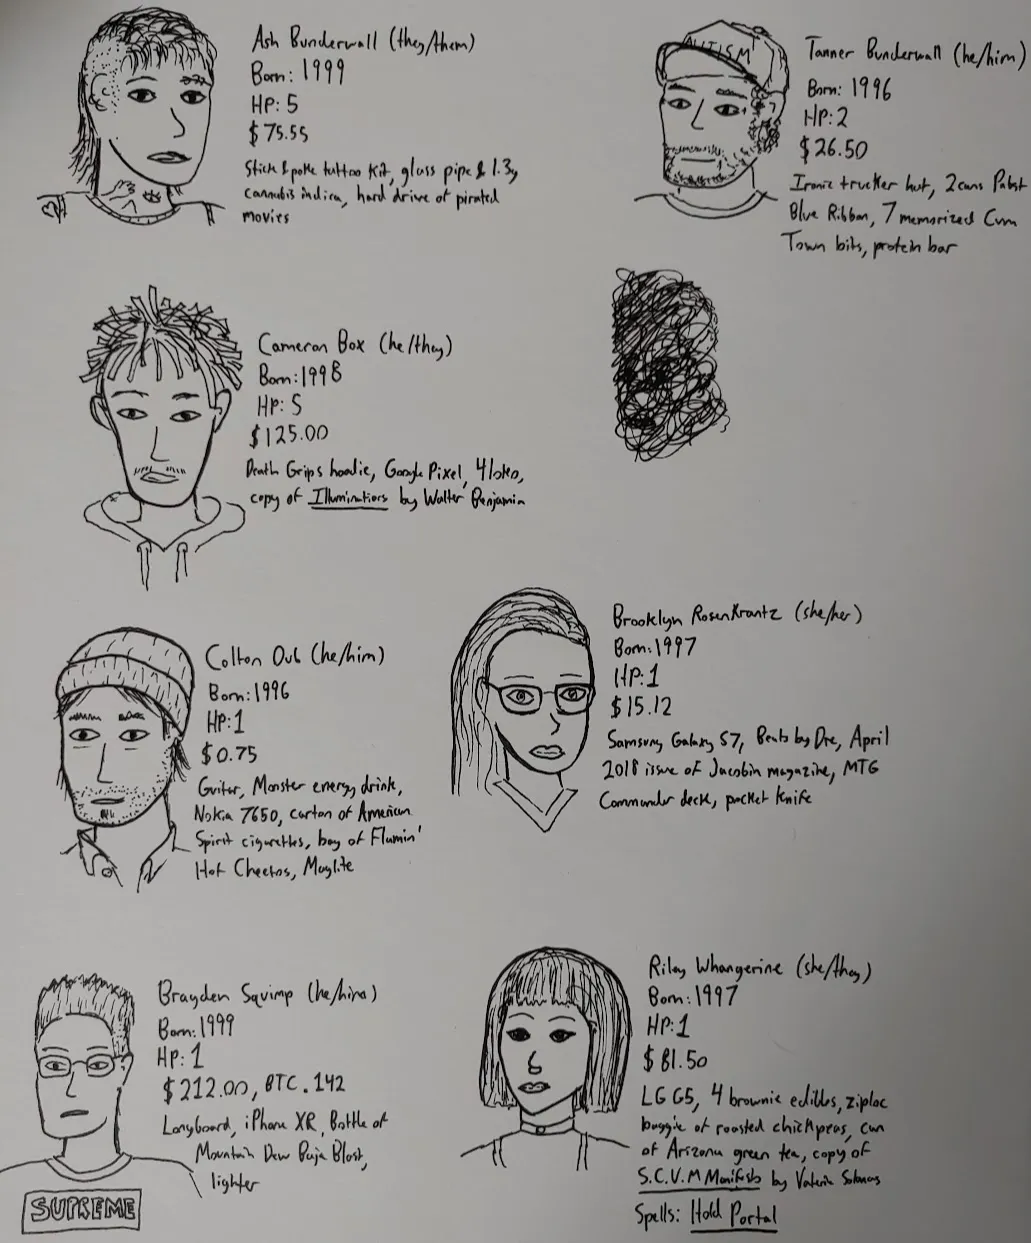 Ash Bunderwall (they/them)
Born: 1999
HP: 5
$75.55
Stick & poke tattoo kit, glass pipe & 1.3g
cannabis indica, hard drive of pirated
movies
AUTISM
Tanner Bunderwall (he/him)
Born: 1996
HP: 2
$26.50
Ironic trucker hat, 2 cans Pabst
Blue Ribbon, 7 memorized Cum
Town bits, protein bar
Cameron Box (he/they)
Born: 1998
HP: 5
$125.00
Death Grips hoodie, Google Pixel, 4loko,
copy of Illuminations by Walter Benjamin
Colton Oub (he/him)
Born: 1996
HP: 1
$0.75
Guitar, Monster energy drink,
Nokia 7650, carton of American
Spirit cigarettes, bag of Flamin'
Hot Cheetos, Maglite
Brooklyn Rosenkrantz (she/her)
Born: 1997
HP: 1
$15.12
Samsung Galaxy S7, Beats by Dre, April
2018 issue of Jacobin magazine, MTG
Commander deck, pocket knife
Brayden Squimp (he/him)
Born: 1999
HP: 1
$212.00, BTC .142
Longboard, iPhone XR, Bottle of
Mountain Dew Baja Blast,
lighter
SUPREME
Riley Whangerine (she/they)
Born: 1997
HP: 1
$81.50
LG G5, 4 brownie edibles, ziploc
baggie of roasted chickpeas, can
of Arizona green tea, copy of
S.C.V.M Manifesto by Valerie Solanas
Spells: Hold Portal